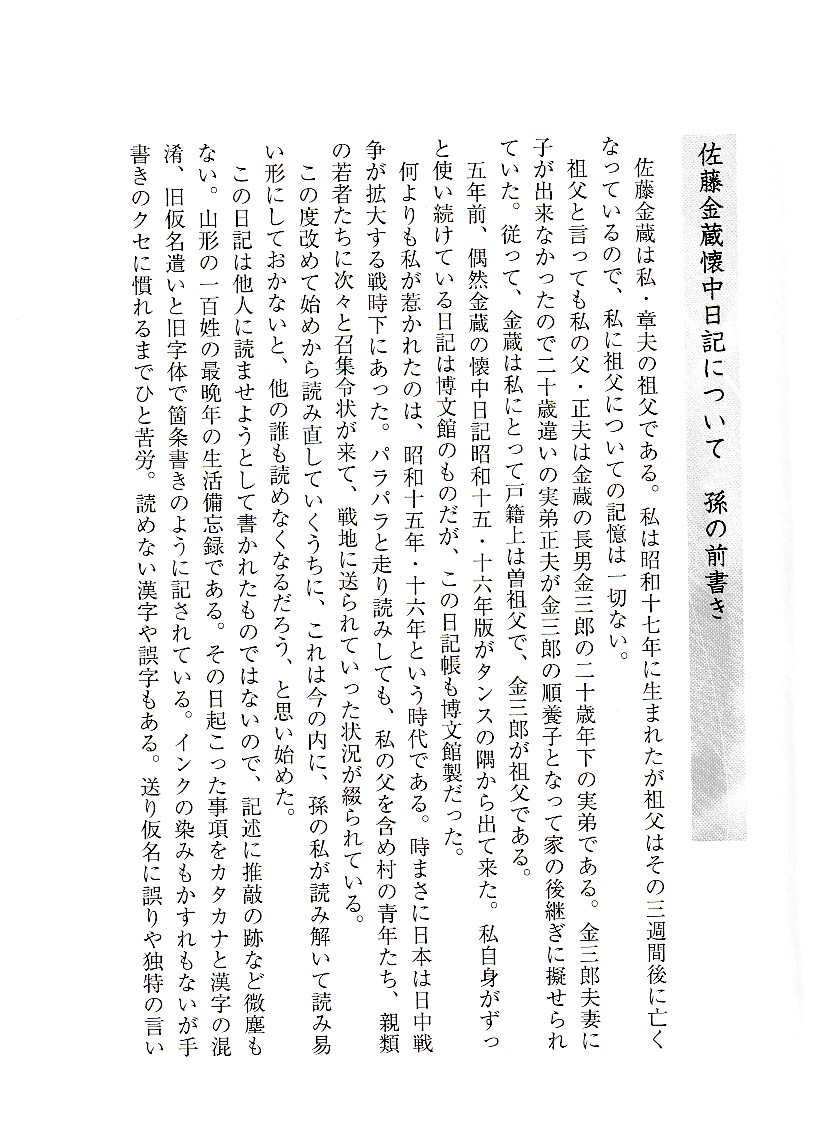 佐藤金蔵懐中日記について　孫の前書き
　佐藤金蔵は私・章夫の祖父である。私は昭和十七年に生まれたが祖父はその三週間後に亡く
なっているので、私に祖父についての記憶は一切ない。
　祖父と言っても私の父・正夫は金蔵の長男金三郎の二十歳年下の実弟である。金三郎夫妻に
子が出来なかったので二十歳違いの実弟正夫が金三郎の順養子となって家の後継ぎに擬せられ
ていた。従って、金蔵は私にとって戸籍上は曽祖父で、金三郎が祖父である。
　五年前、偶然金蔵の懐中日記昭和十五・十六年版がタンスの隅から出て来た。私自身がずっ
と使い続けている日記は博文館のものだが、この日記帳も博文館製だった。
　何よりも私が惹かれたのは、昭和十五年・十六年という時代である。時まさに日本は日中戦
争が拡大する戦時下にあった。パラパラと走り読みしても、私の父を含め村の青年たち、親類
の若者たちに次々と召集令状が来て、戦地に送られていった状況が綴られている。
　この度改めて始めから読み直していくうちに、これは今の内に、孫の私が読み解いて読み易
い形にしておかないと、他の誰も読めなくなるだろう、と思い始めた。
　この日記は他人に読ませようとして書かれたものではないので、記述に推敲の跡など微塵も
ない。山形の一百姓の最晩年の生活備忘録である。その日起こった事項をカタカナと漢字の混
淆、旧仮名遣いと旧字体で箇条書きのように記されている。インクの染みもかすれもないが手
書きのクセに慣れるまでひと苦労。読めない漢字や誤字もある。送り仮名に誤りや独特の言い